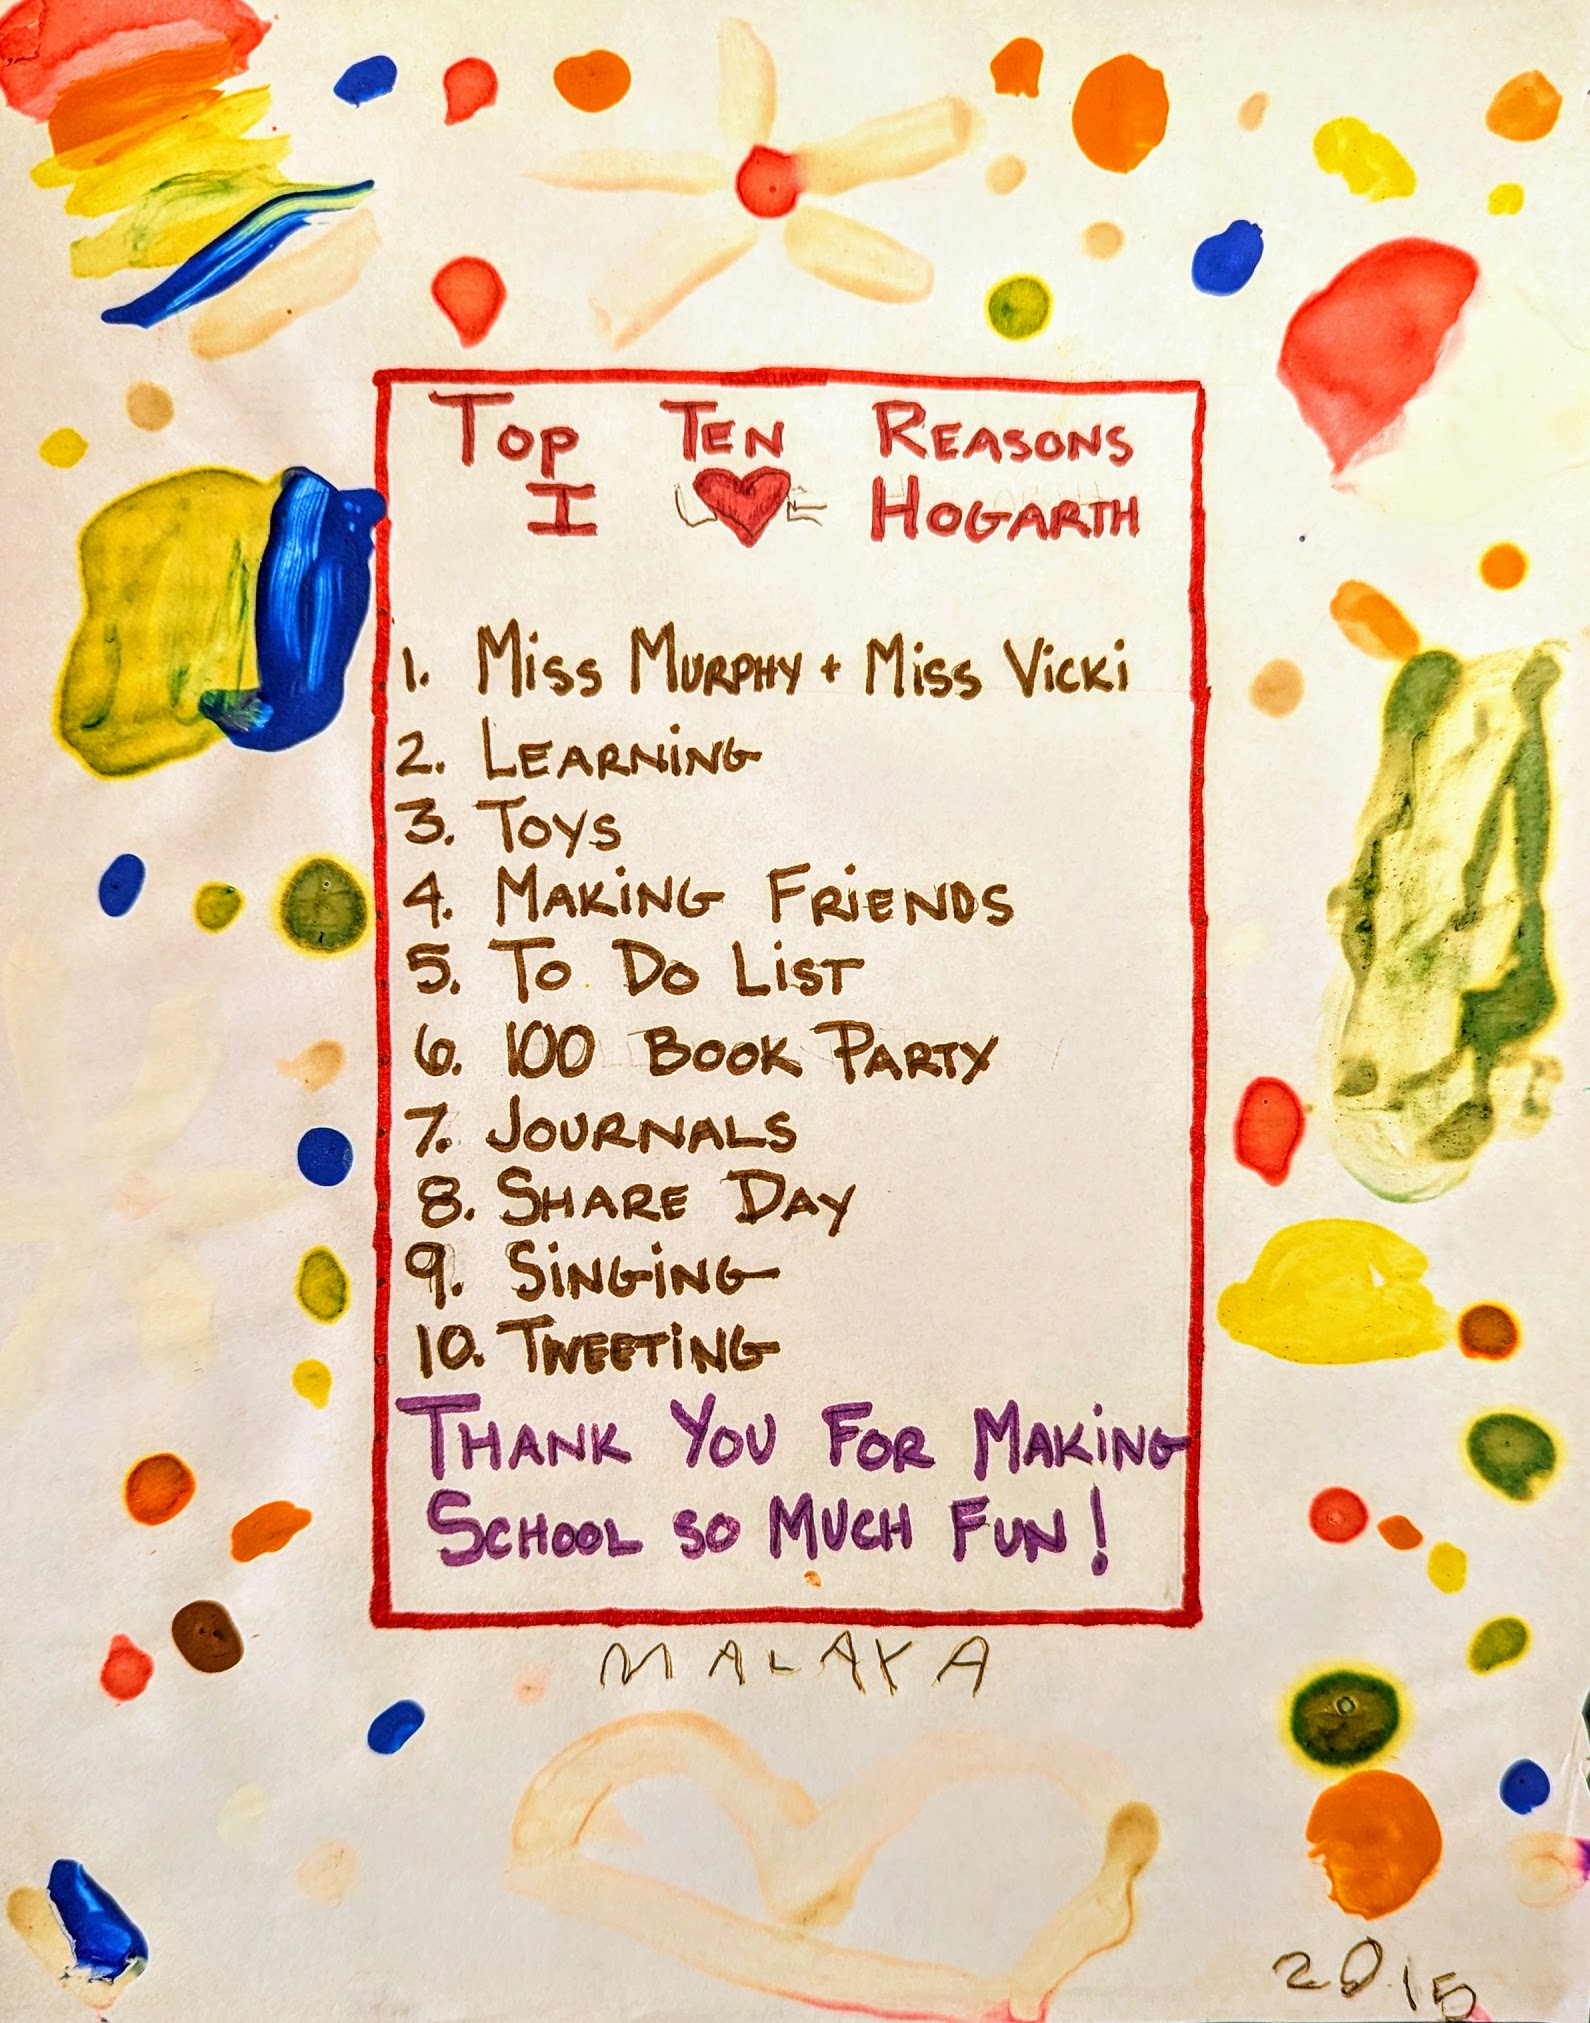 TOP TEN REASONS
I ❤ HOGARTH
1. MISS MURPHY + MISS VICKI
2. LEARNING
3. TOYS
4. MAKING FRIENDS
5. TO DO LIST
6. 100 BOOK PARTY
7. JOURNALS
8. SHARE DAY
9. SINGING
10. TWEETING
THANK YOU FOR MAKING
SCHOOL SO MUCH FUN!
MALAYA
2015